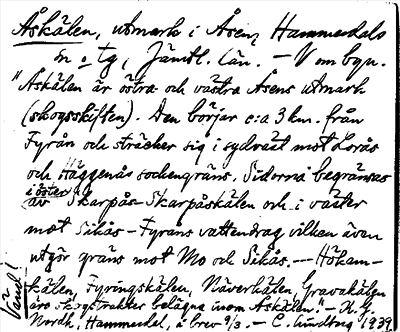 Åskälen, utmark i Åsen, Hammerdals
sn o tg, Jämtl. län. - V om byn.
"Åskälen är östra och västra Åsens utmark
(skogsskiften). Den börjar c:a 3 km. från
Fyrån och sträcker sig i sydväst mot Lorås
och Häggenås sockengräns. Sidorna begränsas
i öster
av Skarpås-Skarpåskälen och i väster
mot Sikås- Fyråns vattendrag vilken även
utgör gräns mot Mo och Sikås. -- Hökam-
kälen, Fyringskälen, Näverkälen Gravakälen
äro skogstrakter belägna inom Åskälen." - K. J.
Nordh, Hammerdal, i brev 9/3. - E. Lundström 1939.
Vänd!